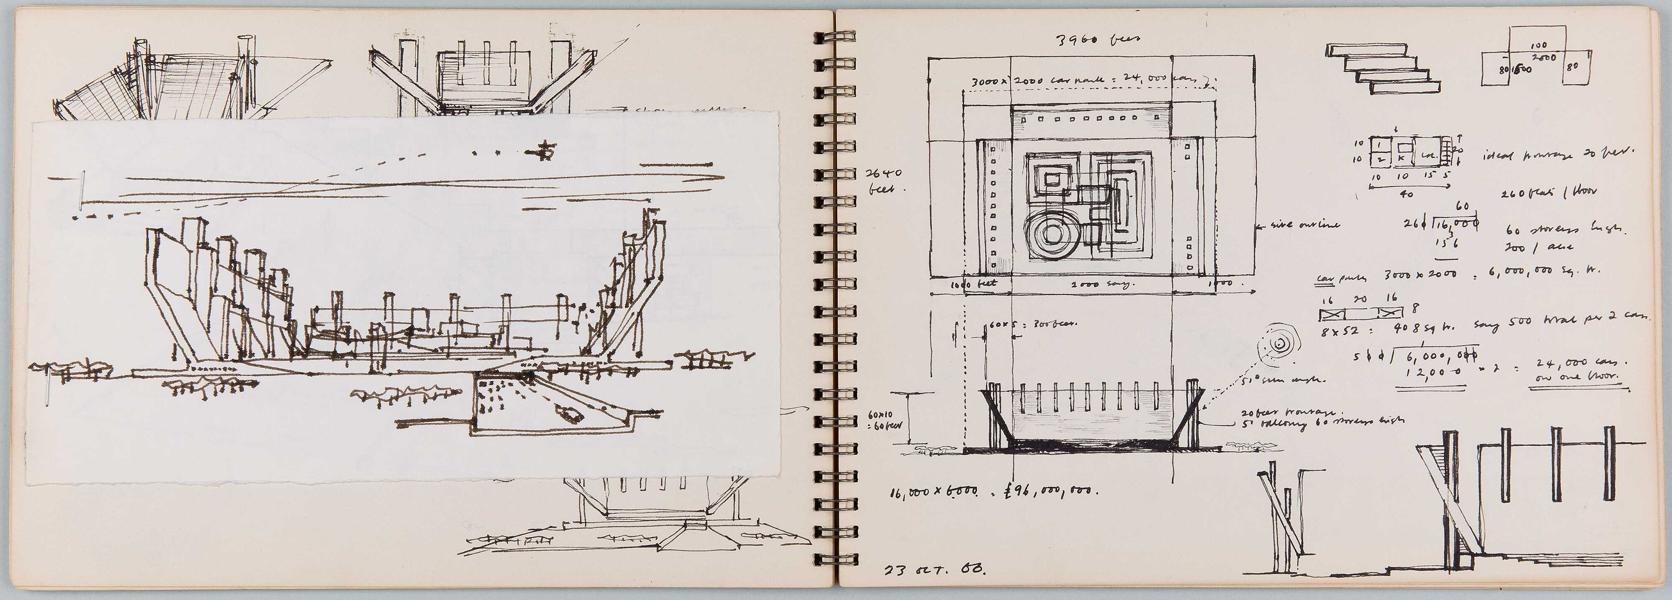 3960 feet
3000 x 2000 car park = 24,000 cars
2640
feet.
site outline
1000 feet
2000 say.
1000.
60x5 = 300 feet.
51° sun angle.
60x10
= 60 feet
20 feet frontage.
5' balcony 60 storeys high
16,000 x 6000 = £96,000,000.
23 OCT. 66.
100
2000
80
1600
80
10
1
10
2
K
20
10 10 15 5
40
ideal frontage 20 feet.
260 flats / floor
60
260 16,000
156
60 storeys high.
200 / acre
car parks 3000 x 2000 = 6,000,000 sq. ft.
16 20 16
8
8 x 52 = 408 sq ft. say 500 total per 2 cars.
500 6,000,000
12,000 x 2 = 24,000 cars.
on one floor.